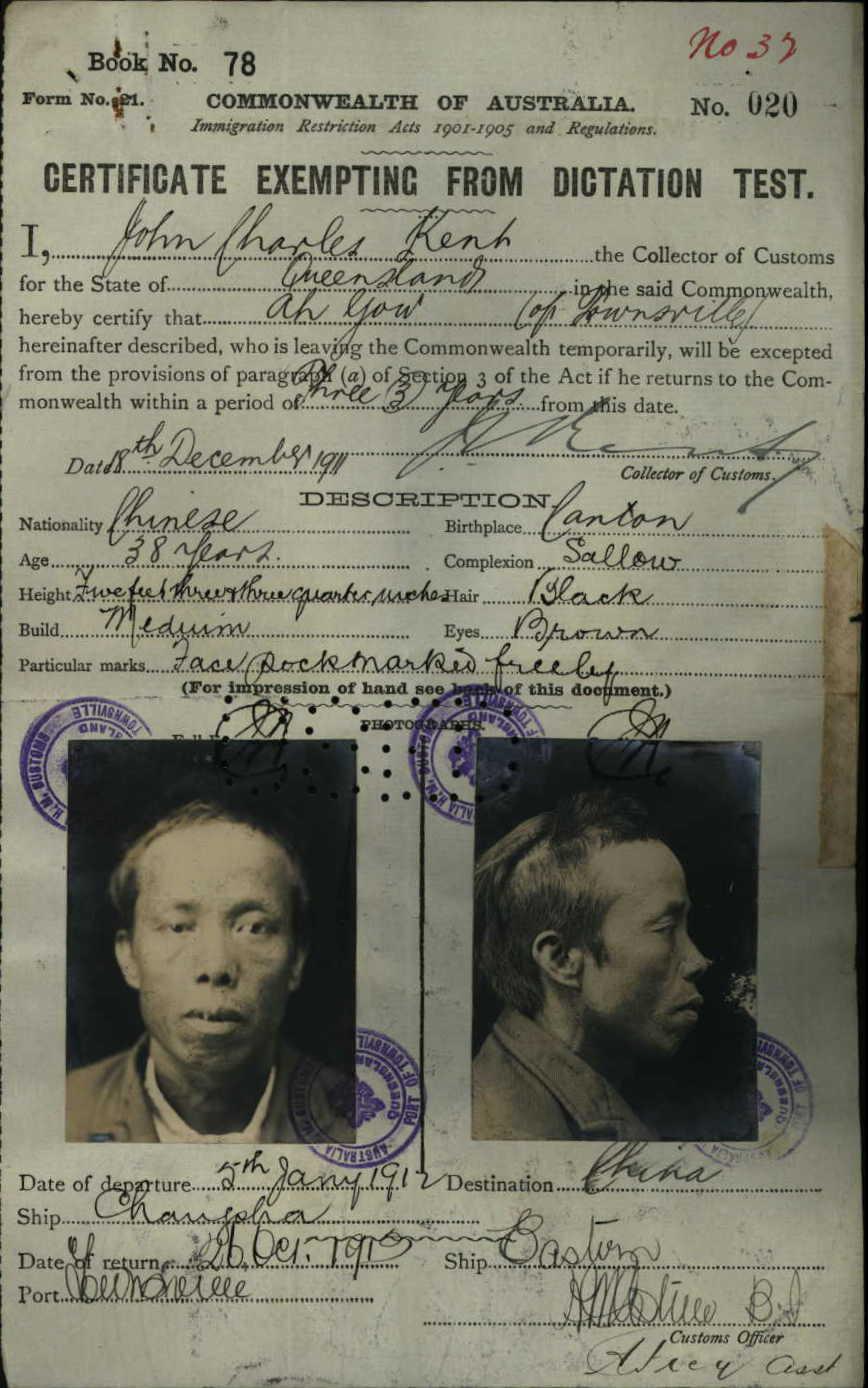 No 37
Book No. 78
Form No. 21.
COMMONWEALTH OF AUSTRALIA.
No. 020
Immigration Restriction Acts 1901-1905 and Regulations.
CERTIFICATE EXEMPTING FROM DICTATION TEST.
I, John Charles Kent the Collector of Customs
for the State of Queensland in the said Commonwealth,
hereby certify that Ah Gow (of Townsville)
hereinafter described, who is leaving the Commonwealth temporarily, will be excepted
from the provisions of paragraph (a) of Section 3 of the Act if he returns to the Com-
monwealth within a period of Three (3) years from this date.
Date 18th December 1911
Collector of Customs.
DESCRIPTION
Nationality Chinese
Birthplace Canton
Age 38 years.
Complexion Sallow
Height Five feet three & three quarter inches
Hair Black
Build Medium
Eyes Brown
Particular marks Face pockmarked freely
(For impression of hand see back of this document.)
PHOTOGRAPHS.
H.M. CUSTOMS TOWNSVILLE
PORT OF TOWNSVILLE
QUEENSLAND
AUSTRALIA
Date of departure 5th Jany 1912
Destination China
Ship Changsha
Date of return 26 Oct. 1913
Ship Eastern
Port Townsville
Customs Officer